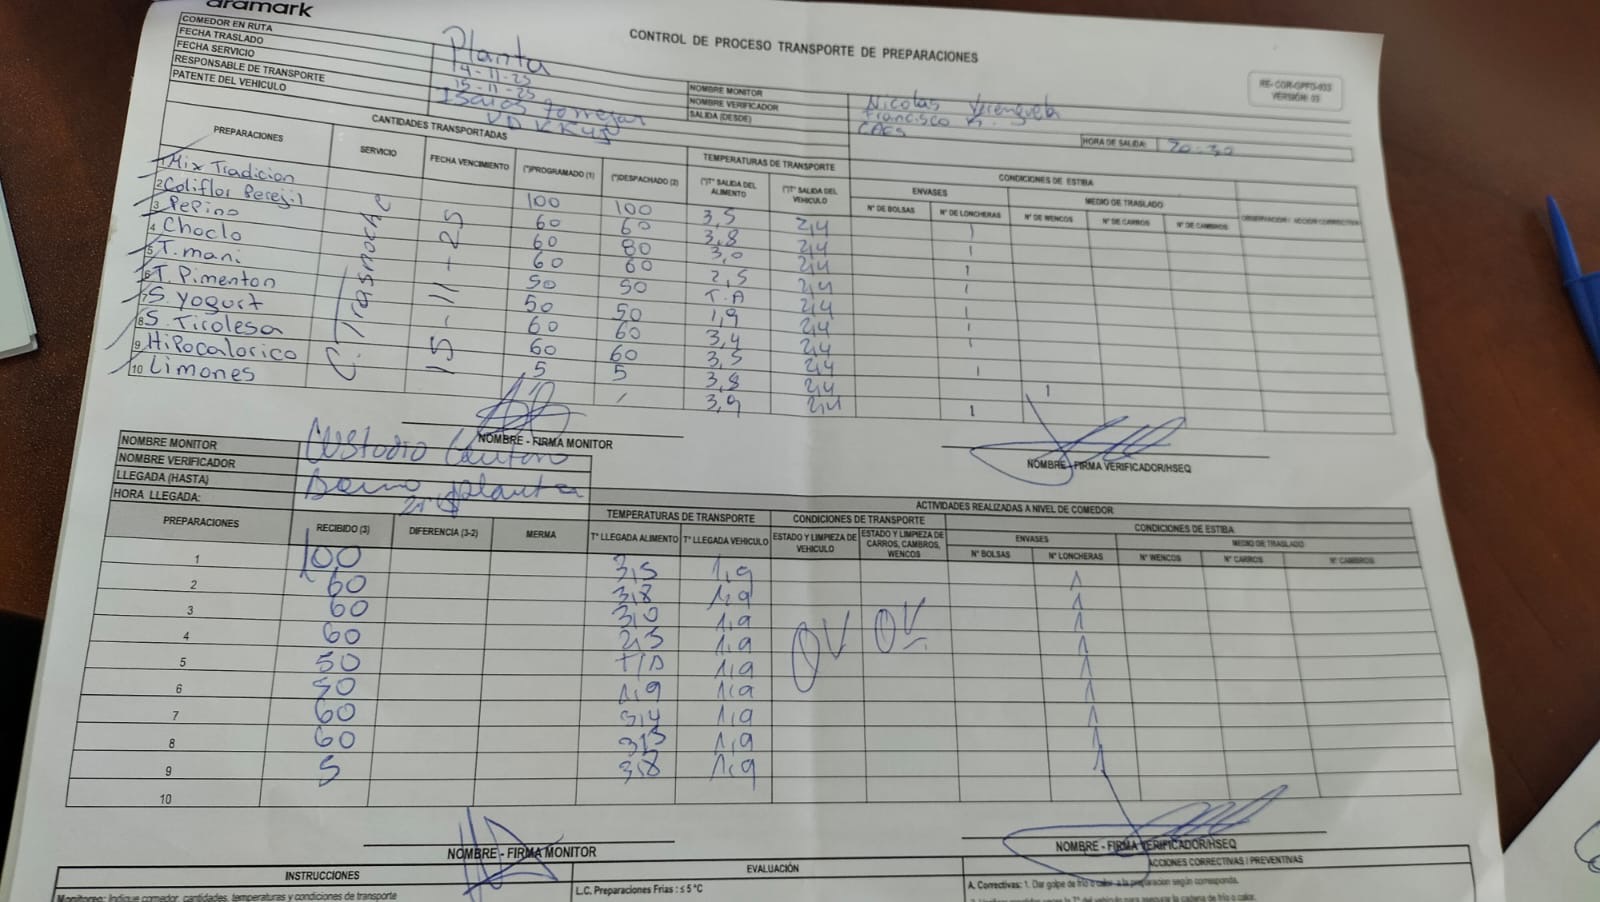 aramark
CONTROL DE PROCESO TRANSPORTE DE PREPARACIONES
RE-COR-GPFG-033
VERSIÓN: 03
COMEDOR EN RUTA Planta
FECHA TRASLADO 14-11-25
FECHA SERVICIO 15-11-25
RESPONSABLE DE TRANSPORTE
PATENTE DEL VEHICULO
NOMBRE MONITOR Nicolas
NOMBRE VERIFICADOR Francisco
SALIDA (DESDE) HORA DE SALIDA: 20:30
CANTIDADES TRANSPORTADAS TEMPERATURAS DE TRANSPORTE CONDICIONES DE ESTIBA
ENVASES MEDIO DE TRASLADO
PREPARACIONES SERVICIO FECHA VENCIMIENTO (*)PROGRAMADO (1) (*)DESPACHADO (2) (*)T° SALIDA DEL ALIMENTO (*)T° SALIDA DEL VEHICULO N° DE BOLSAS N° DE LONCHERAS N° DE WENCOS N° DE CARROS N° DE CAMBROS OBSERVACION / ACCION CORRECTIVA
C. Trasnoche
15-11-25
1 Mix Tradicion 100 100 3,5 2,4 1
2 Coliflor Perejil 60 60 3,8 2,4 1
3 Pepino 60 80 3,0 2,4 1
4 Choclo 60 60 2,5 2,4 1
5 T. mani 50 50 T.A 2,4 1
6 T. Pimenton 50 50 1,9 2,4 1
7 S. Yogurt 60 60 3,4 2,4
8 S. Tirolesa 60 60 3,5 2,4 1
9 Hipocalorico 5 5 3,8 2,4 1
10 Limones / 3,9 2,4 1
NOMBRE - FIRMA MONITOR
NOMBRE - FIRMA VERIFICADOR/HSEQ
NOMBRE MONITOR Custodio
NOMBRE VERIFICADOR
LLEGADA (HASTA) planta
HORA LLEGADA:
ACTIVIDADES REALIZADAS A NIVEL DE COMEDOR
TEMPERATURAS DE TRANSPORTE CONDICIONES DE TRANSPORTE CONDICIONES DE ESTIBA
ENVASES MEDIO DE TRASLADO
PREPARACIONES RECIBIDO (3) DIFERENCIA (3-2) MERMA T° LLEGADA ALIMENTO T° LLEGADA VEHICULO ESTADO Y LIMPIEZA DE VEHICULO ESTADO Y LIMPIEZA DE CARROS, CAMBROS, WENCOS N° BOLSAS N° LONCHERAS N° WENCOS N° CARROS N° CAMBROS
1 100 3,5 1,9 1
2 60 3,8 1,9 1
3 60 3,0 1,9 1
4 60 2,5 1,9 OK OK 1
5 50 T/A 1,9 1
6 50 1,9 1,9 1
7 60 3,4 1,9 1
8 60 3,5 1,9 1
9 5 3,8 1,9 1
10
NOMBRE - FIRMA MONITOR
NOMBRE - FIRMA VERIFICADOR/HSEQ
INSTRUCCIONES EVALUACIÓN ACCIONES CORRECTIVAS / PREVENTIVAS
Monitoreo: Indique comedor, cantidades, temperaturas y condiciones de transporte
L.C. Preparaciones Frias : ≤ 5 °C
A. Correctivas: 1. Dar golpe de frío o calor a la preparacion según corresponda.